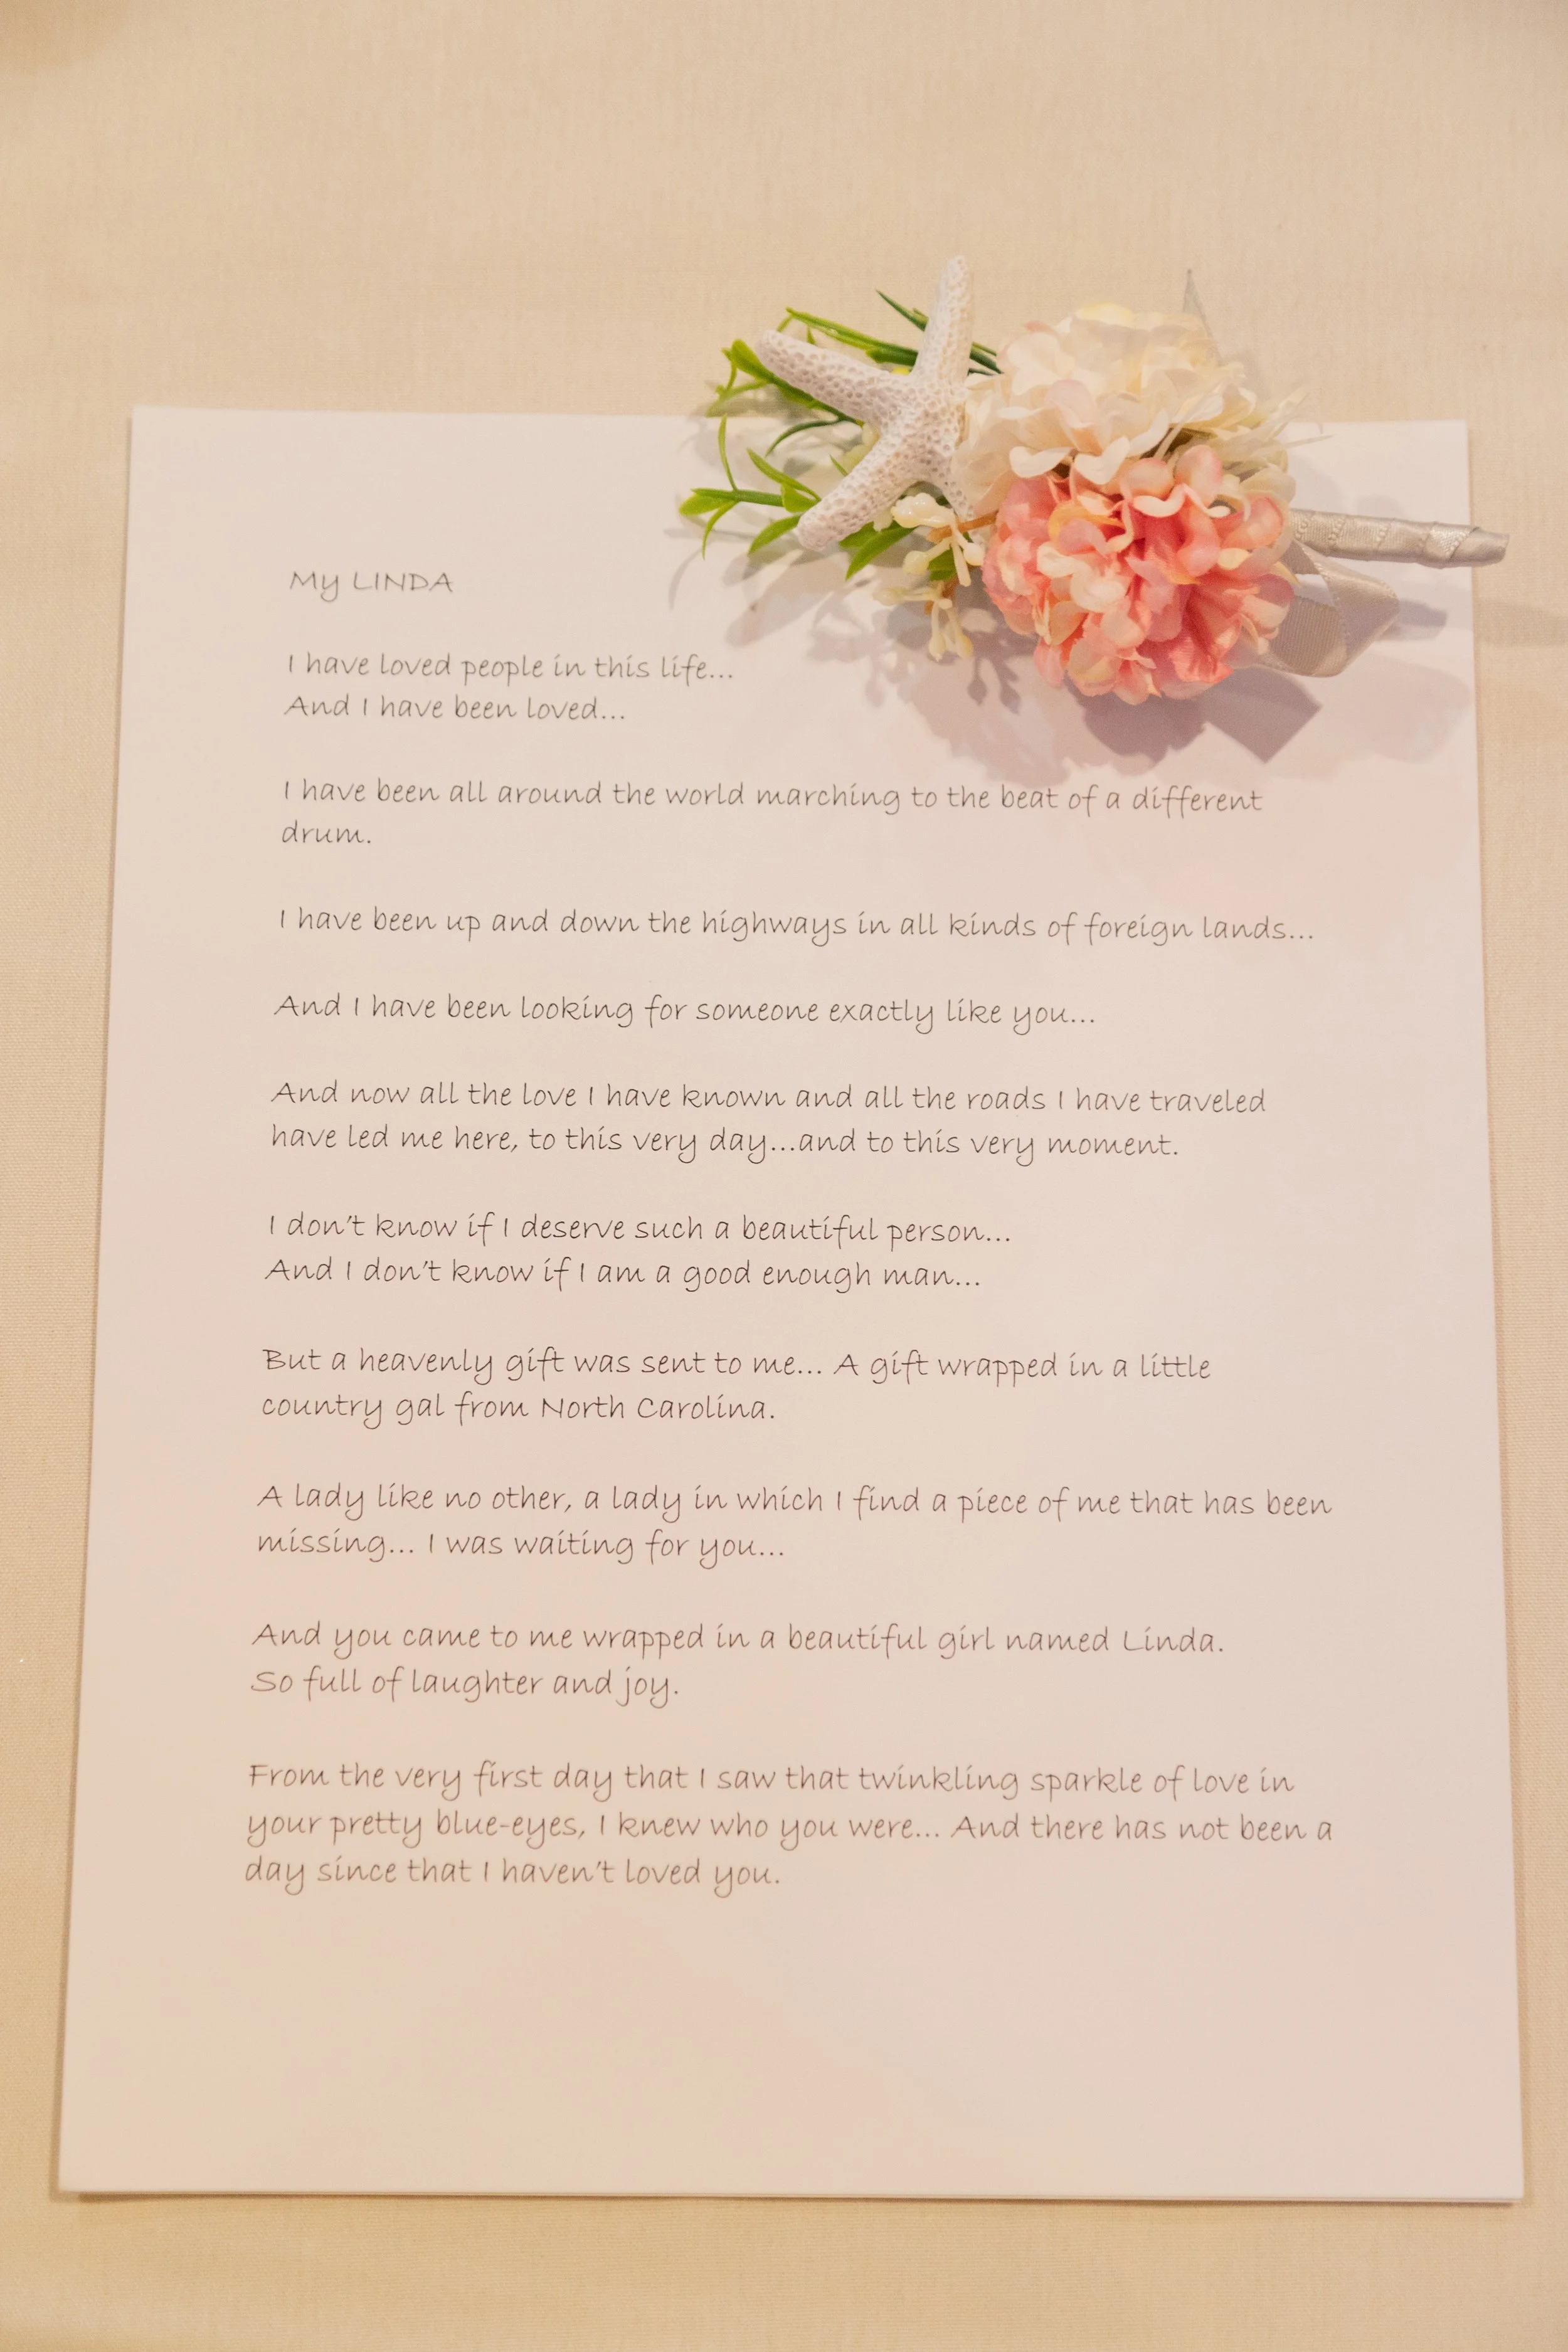 My LINDA
I have loved people in this life...
And I have been loved...
I have been all around the world marching to the beat of a different
drum.
I have been up and down the highways in all kinds of foreign lands...
And I have been looking for someone exactly like you...
And now all the love I have known and all the roads I have traveled
have led me here, to this very day...and to this very moment.
I don't know if I deserve such a beautiful person...
And I don't know if I am a good enough man...
But a heavenly gift was sent to me... A gift wrapped in a little
country gal from North Carolina.
A lady like no other, a lady in which I find a piece of me that has been
missing... I was waiting for you...
And you came to me wrapped in a beautiful girl named Linda.
So full of laughter and joy.
From the very first day that I saw that twinkling sparkle of love in
your pretty blue-eyes, I knew who you were... And there has not been a
day since that I haven't loved you.